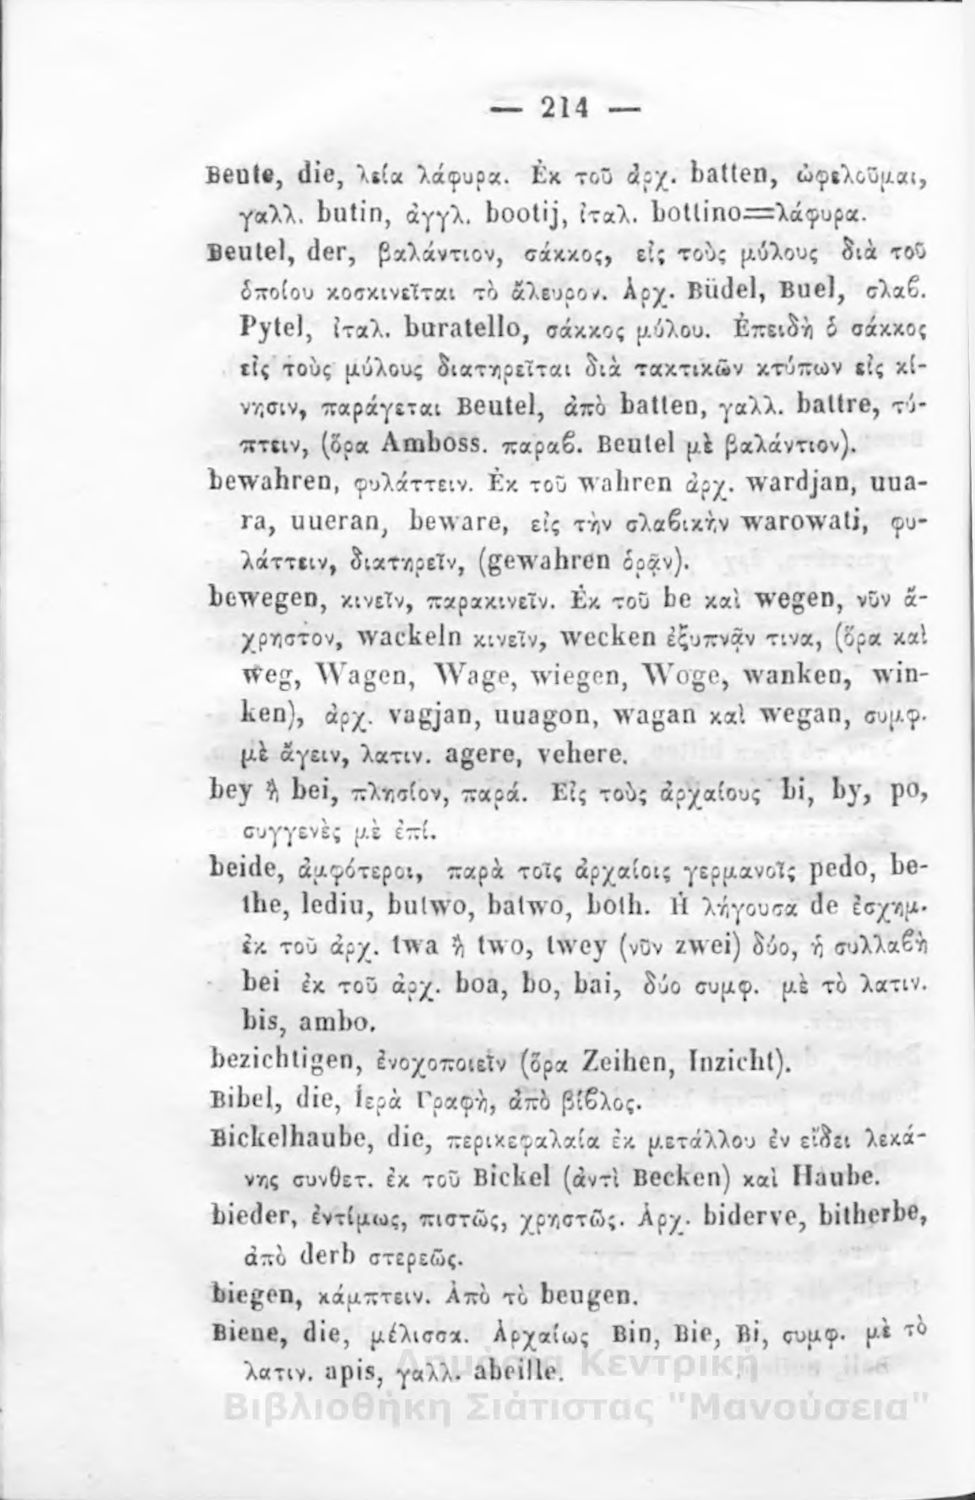 — 214 —
Beute, die, λεία λάφυρα. Ἐκ τοῦ ἀρχ. batten, ὠφελοῦμαι,
γαλλ. butin, ἀγγλ. bootij, ἰταλ. bottino=λάφυρα.
Beutel, der, βαλάντιον, σάκκος, εἰς τοὺς μύλους διὰ τοῦ
ὁποίου κοσκινεῖται τὸ ἄλευρον. Ἀρχ. Büdel, Buel, σλαβ.
Pytel, ἰταλ. buratello, σάκκος μύλου. Ἐπειδὴ ὁ σάκκος
εἰς τοὺς μύλους διατηρεῖται διὰ τακτικῶν κτύπων εἰς κί-
νησιν, παράγεται Beutel, ἀπὸ batten, γαλλ. battre, τύ-
πτειν, (ὅρα Amboss. παραβ. Beutel μὲ βαλάντιον).
bewahren, φυλάττειν. Ἐκ τοῦ wahren ἀρχ. wardjan, uua-
ra, uueran, beware, εἰς τὴν σλαβικὴν warowati, φυ-
λάττειν, διατηρεῖν, (gewahren ὁρᾷν).
bewegen, κινεῖν, παρακινεῖν. Ἐκ τοῦ be καὶ wegen, νῦν ἄ-
χρηστον, wackeln κινεῖν, wecken ἐξυπνᾷν τινα, (ὅρα καὶ
Weg, Wagen, Wage, wiegen, Woge, wanken, win-
ken), ἀρχ. vagjan, uuagon, wagan καὶ wegan, συμφ.
μὲ ἄγειν, λατιν. agere, vehere.
bey ἢ bei, πλησίον, παρά. Εἰς τοὺς ἀρχαίους bi, by, po,
συγγενὲς μὲ ἐπί.
beide, ἀμφότεροι, παρὰ τοῖς ἀρχαίοις γερμανοῖς pedo, be-
the, lediu, butwo, batwo, both. Ἡ λήγουσα de ἐσχημ.
ἐκ τοῦ ἀρχ. twa ἢ two, twey (νῦν zwei) δύο, ἡ συλλαβὴ
bei ἐκ τοῦ ἀρχ. boa, bo, bai, δύο συμφ. μὲ τὸ λατιν.
bis, ambo.
bezichtigen, ἐνοχοποιεῖν (ὅρα Zeihen, Inzicht).
Bibel, die, Ἱερὰ Γραφὴ, ἀπὸ βίβλος.
Bickelhaube, die, περικεφαλαία ἐκ μετάλλου ἐν εἴδει λεκά-
νης συνθετ. ἐκ τοῦ Bickel (ἀντὶ Becken) καὶ Haube.
bieder, ἐντίμως, πιστῶς, χρηστῶς. Ἀρχ. biderve, bitherbe,
ἀπὸ derb στερεῶς.
biegen, κάμπτειν. Ἀπὸ τὸ beugen.
Biene, die, μέλισσα. Ἀρχαίως Bin, Bie, Bi, συμφ. μὲ τὸ
λατιν. apis, γαλλ. abeille.
Δημόσια Κεντρική
Βιβλιοθήκη Σιάτιστας "Μανούσεια"